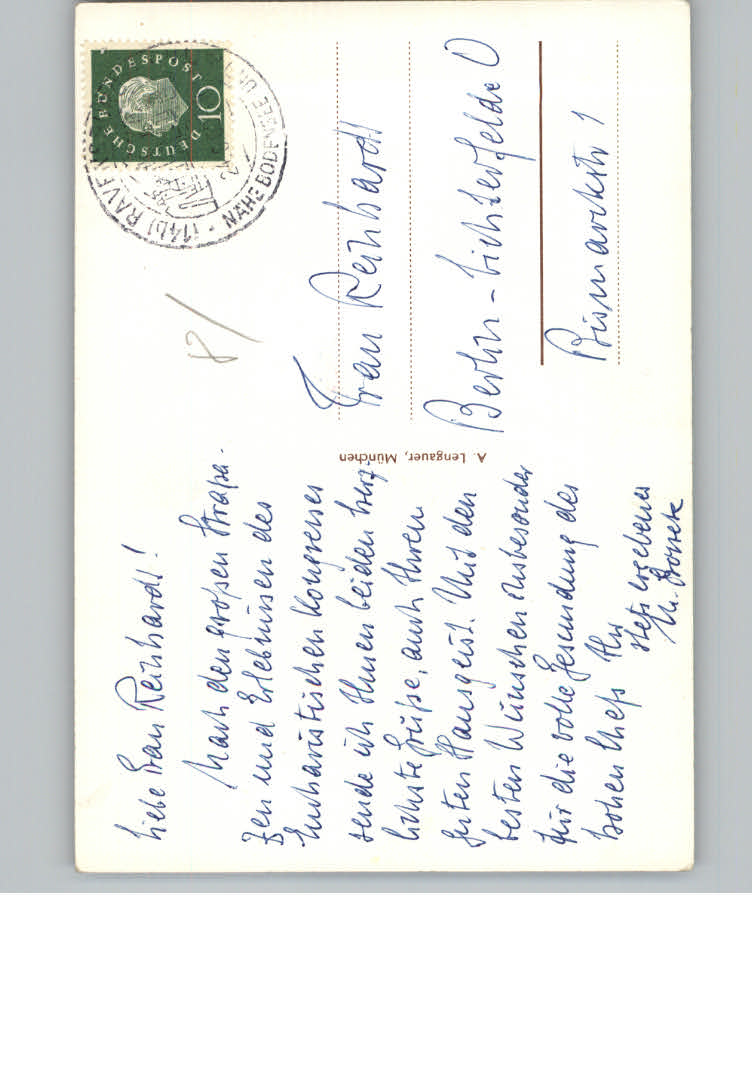 Liebe Frau Reinhardt!
Nach den großen Straßa-
zen und Erlebnissen des
Eucharistischen Kongresses
sende ich Ihnen beiden herz-
lichste Grüße, auch Ihrem
guten Hausgeist. Mit den
besten Wünschen insbesonder
für die volle Gesundung des
hohen Chefs Ihr
stets ergebener
A. Lengauer, München
Frau Reinhardt
Berlin-Lichterfelde O
Bismarckstr 1
8/
DEUTSCHE BUNDESPOST
10
(14b) RAVEN
NÄHE BODENSEE